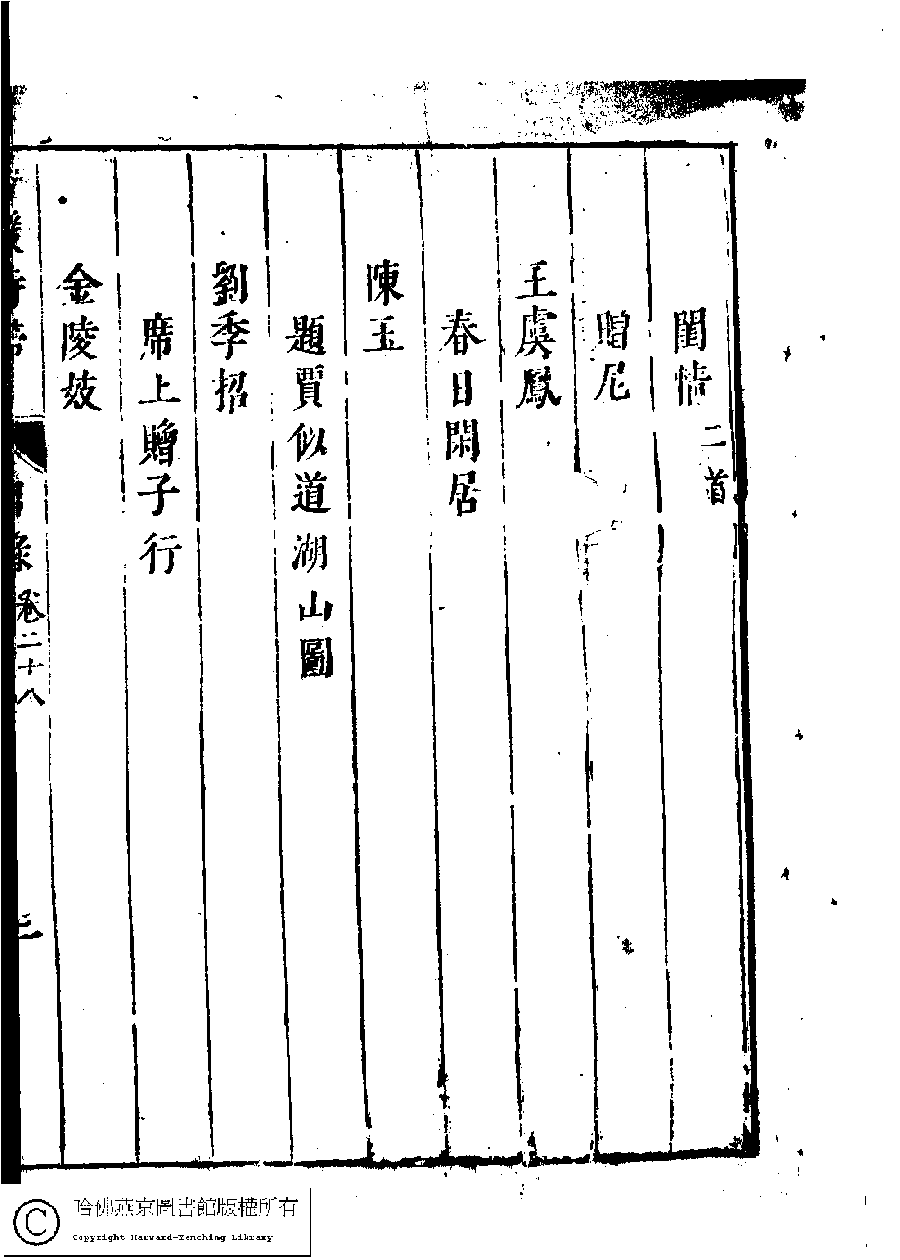 閨情二首
贈尼
王虞鳳
春日閑居
陳玉
題賈似道湖山圖
劉季招
席上贈子行
金陵妓
目錄 卷二十八
三
哈佛燕京圖書館版權所有
Copyright Harvard-Yenching Library